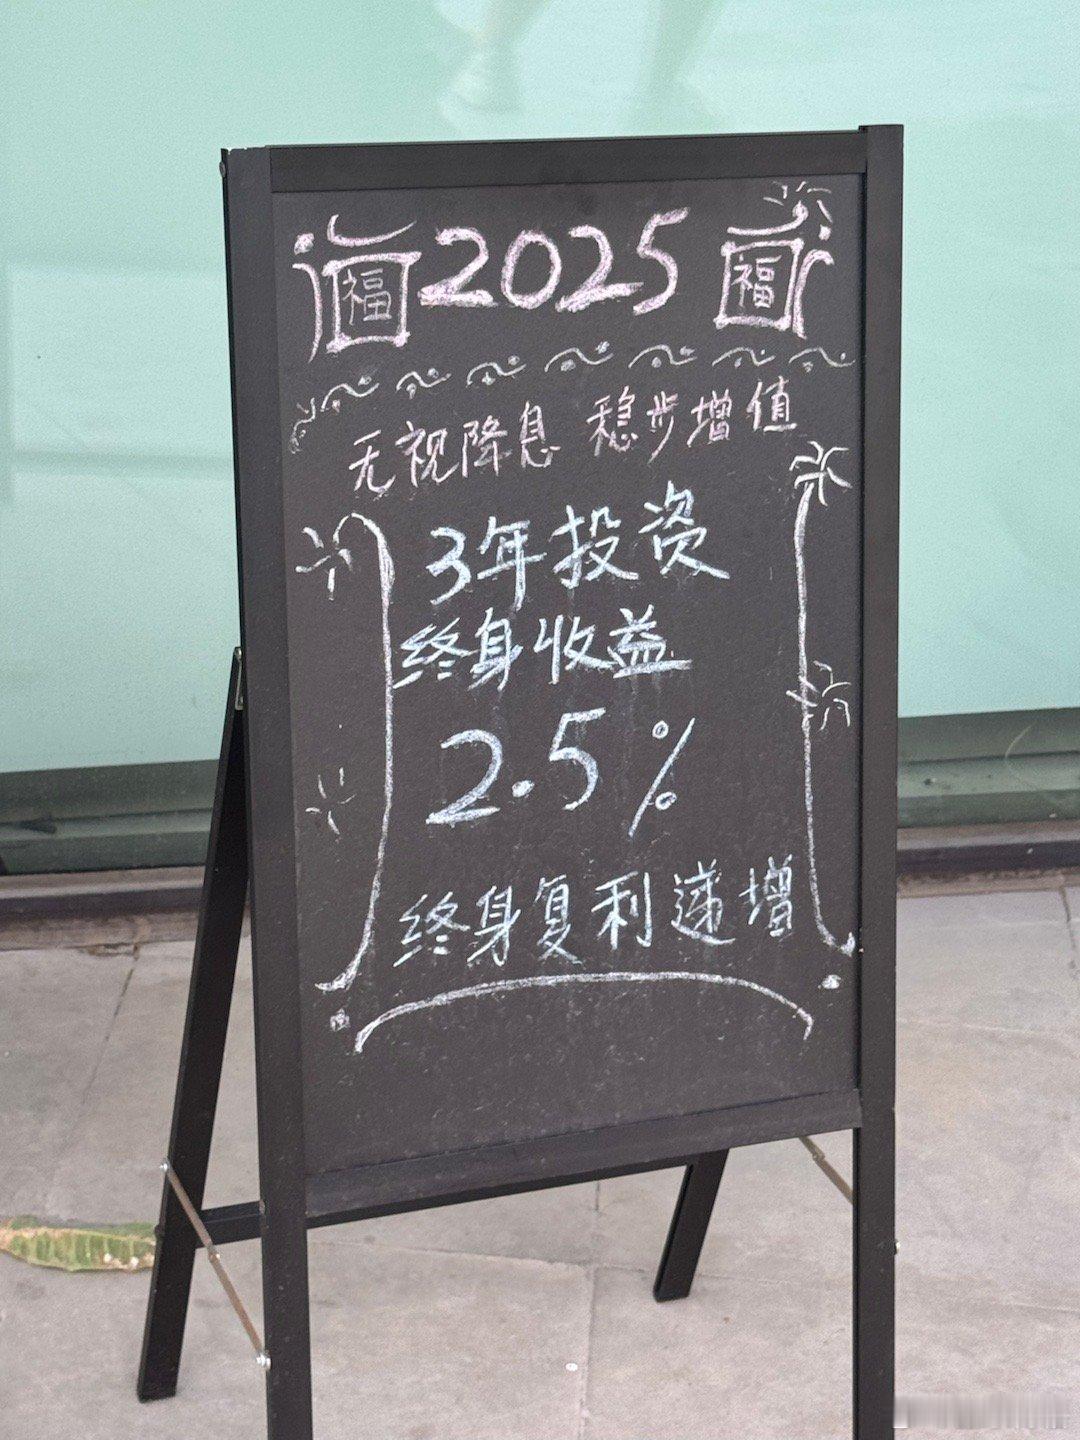 福 2025 福
无视降息 稳步增值
3年投资
终身收益
2.5%
终身复利递增